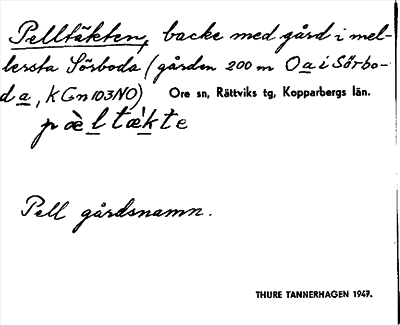 Pelltäkten, backe med gård i mel-
lersta Sörboda (gården 200 m O a i Sörbo-
da, KGn 103NO) Ore sn, Rättviks tg, Kopparbergs län.
pæ̀ltæ̀kte
Pell gårdsnamn.
THURE TANNERHAGEN 1947.